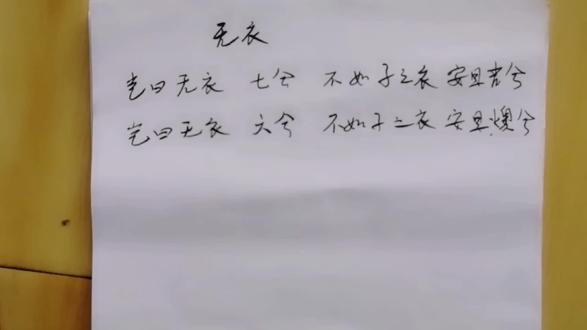 无衣
岂曰无衣 七兮 不如子之衣 安且吉兮
岂曰无衣 六兮 不如子之衣 安且燠兮